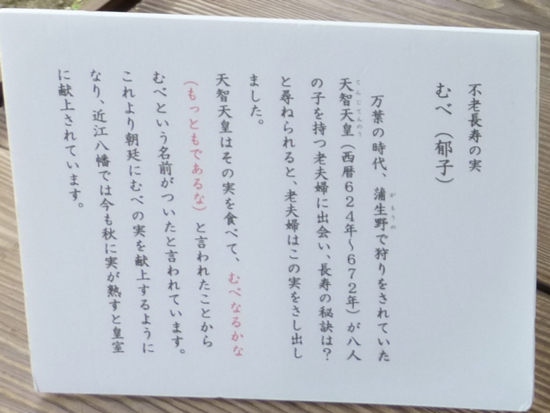 不老長寿の実
むべ（郁子）
万葉の時代、蒲生野で狩りをされていた
天智天皇（西暦６２４年～６７２年）が八人
の子を持つ老夫婦に出会い、長寿の秘訣は？
と尋ねられると、老夫婦はこの実をさし出し
ました。
天智天皇はその実を食べて、むべなるかな
（もっともであるな）と言われたことから
むべという名前がついたと言われています。
これより朝廷にむべの実を献上するように
なり、近江八幡では今も秋に実が熟すと皇室
に献上されています。